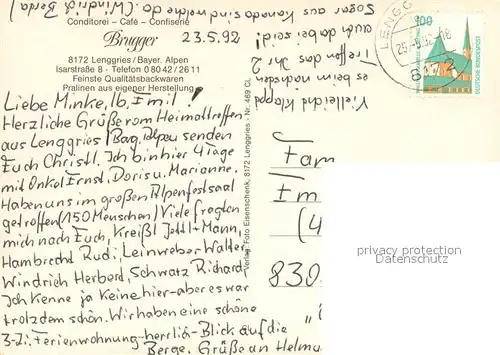 Conditorei - Café - Confiserie
Brugger
23.5.92
8172 Lenggries / Bayer. Alpen
Isarstraße 8 - Telefon 0 80 42 / 26 11
Feinste Qualitätsbackwaren
Pralinen aus eigener Herstellung
Liebe Minke, lb. Emil!
Herzliche Grüße vom Heimattreffen
aus Lenggries / Bay. Alpen senden
Euch Christl. Ich bin hier 4 Tage
mit Onkel Ernst, Doris u. Marianne.
Haben uns im großen Alpenfestsaal
getroffen (150 Menschen) Viele fragten
mich nach Euch, Kreißl Jettl-Mann,
Hambrecht Rudi, Leinweber Walter,
Windrich Herbord, Schwatz Richard,
Ich Kenne ja Keine hier - aber es war
trotzdem schön. Wir haben eine schöne
3-Zi. Ferienwohnung - herrlich - Blick auf die
Berge. Grüße an Helmu
Vielleicht klappt
es beim nächsten
Treffen des Jhr 2
auch dabei seid!
Sogar aus Kanada sind welche da (Windrich Berta)
Verlag: Foto Eisenschenk, 8172 Lenggries - Nr. 469 CL
LENGG
8172
100
DEUTSCHE BUNDESPOST
Fam
Em
(4
830
privacy protection
Datenschutz